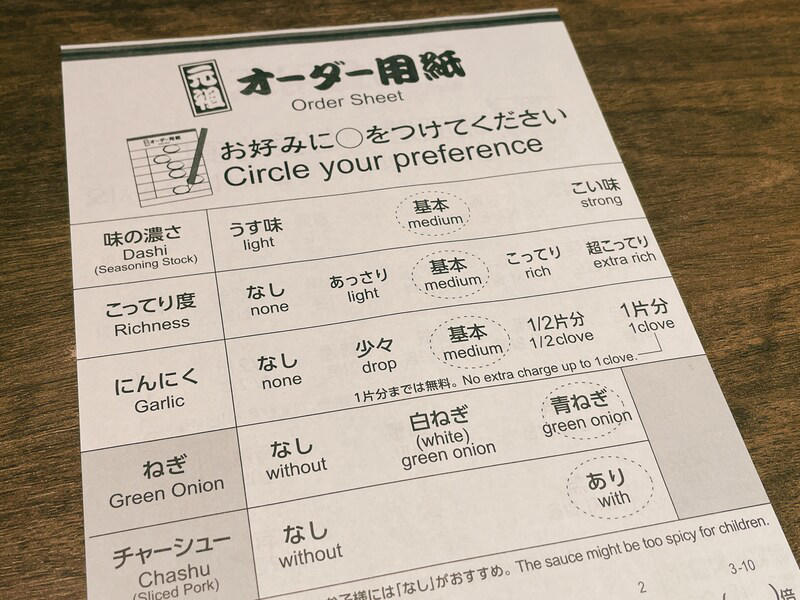 元祖 オーダー用紙
Order Sheet
お好みに○をつけてください
Circle your preference
味の濃さ
Dashi
(Seasoning Stock)
うす味
light
基本
medium
こい味
strong
こってり度
Richness
なし
none
あっさり
light
基本
medium
こってり
rich
超こってり
extra rich
にんにく
Garlic
なし
none
少々
drop
基本
medium
1/2片分
1/2clove
1片分
1clove
1片分までは無料。No extra charge up to 1clove.
ねぎ
Green Onion
なし
without
白ねぎ
(white)
green onion
青ねぎ
green onion
チャーシュー
Chashu
(Sliced Pork)
なし
without
あり
with
子様には「なし」がおすすめ。 The sauce might be too spicy for children.
2
3-10
( )倍